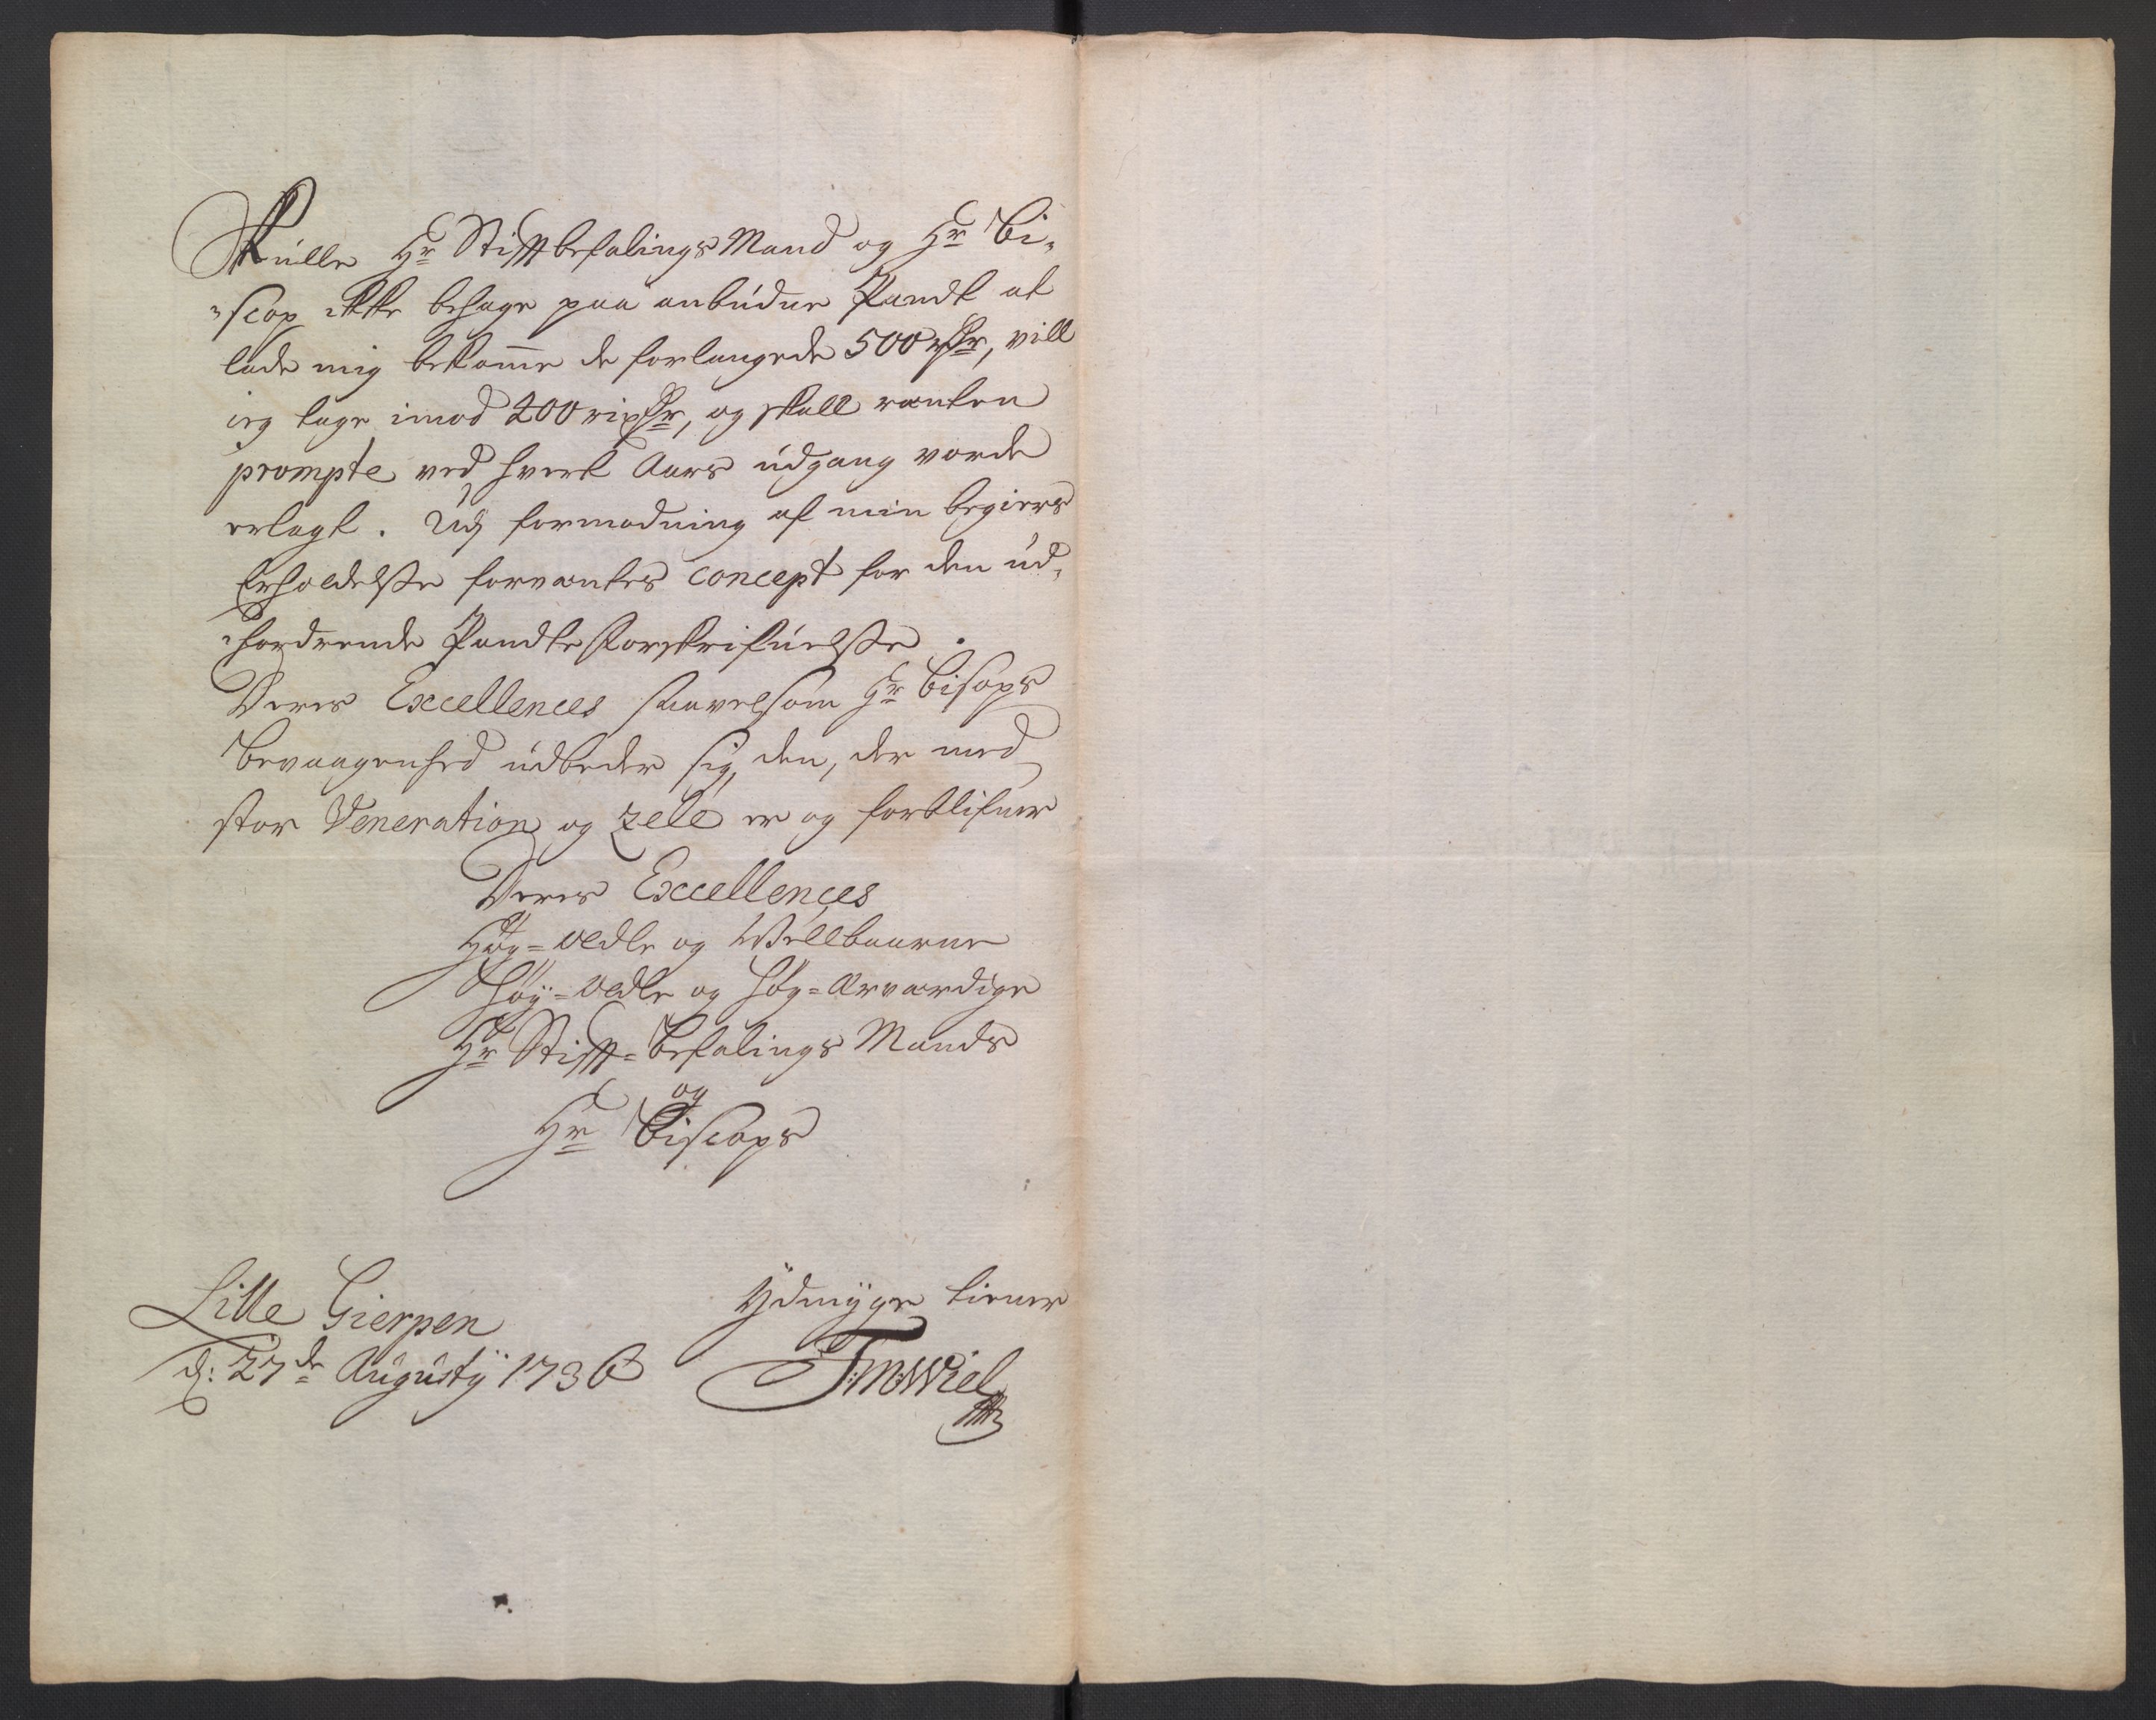 Skulle Hr StifftbefalingsMand og Hr Bi-
-scop ikke behage paa anbudne Pandt at
lade mig bekomme de forlangede 500 rdr, vill
ieg tage imod 200 rixdr, og skall renten
prompte ved hvert Aars udgang vorde
erlagt. Udj formodning af min begiers
Erholdelsse forventes concept for den ud-
-fordrende Pandte Forskrifuelsse.
Deres Excellences saavelsom Hr Bisops
Bevaagenhed udbeder sig, den, der med
stor Veneration og zele er og fortlifuer
Deres Excellences
Høy=ædle og Wellbaarne
Høy=ædle og Høy=ærværdige
Hr Stifft=Befalings Mands
og
Hr Biscops
Lille Gierpen
d: 27de Augusty 1736
Ydmyge tiener
T:m:Wiel